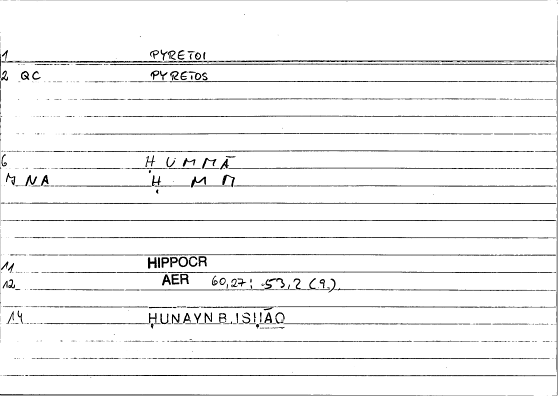 1 PYRETOI
2 QC PYRETOS
6 ḤUMMĀ
NA Ḥ MM
11 HIPPOCR
12 AER 60,27; 53,2 (9.)
14 ḤUNAYN B. ISḤĀQ